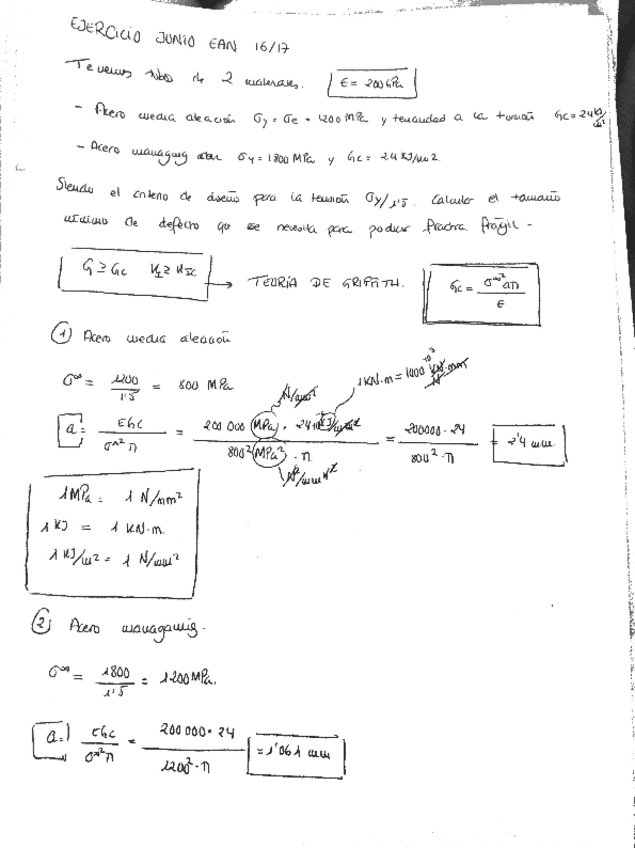 EJERCICIO JUNIO EAN 16/17
Tenemos tubos de 2 materiales. E = 200 GPa
- Acero media aleación σy = σe = 1200 MPa y tenacidad a la torsión Gc = 24 KJ/m²
- Acero σy = 1800 MPa y Gc = 24 KJ/m2
Siendo el criterio de diseño para la tensión σy/1'5. Calcular el tamaño
mínimo de defecto que se necesita para producir fractura frágil -
G ≥ Gc KI ≥ KIC → TEORÍA DE GRIFFITH. Gc = σ∞² aπ / E
① Acero media aleación
σ∞ = 1200 / 1'5 = 800 MPa
N/mm² 1 KN·m = 1000 10³ KN·mm
a = EGc / σ∞² π = 200 000 (MPa) · 24 KJ/m² / 800² (MPa²) · π = 200000 · 24 / 800² · π = 2'4 mm.
N²/mm⁴
1 MPa = 1 N/mm²
1 KJ = 1 KN·m.
1 KJ/m² = 1 N/mm²
② Acero
σ∞ = 1800 / 1'5 = 1200 MPa.
a = EGc / σ∞² π = 200 000 · 24 / 1200² · π = 1'061 mm